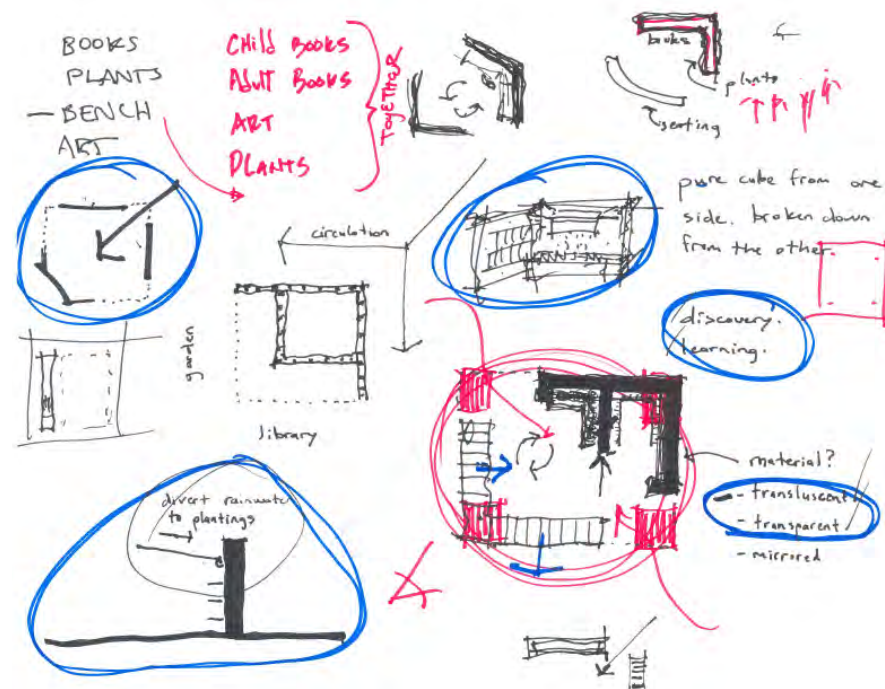 BOOKS
PLANTS
— BENCH
ART
CHILD BOOKS
ADULT BOOKS
ART
PLANTS
TOGETHER
books
plants
seating
pure cube from one
side. broken down
from the other.
circulation
garden
library
discovery.
learning.
divert rainwater
to plantings
material?
- transluscent
- transparent
- mirrored